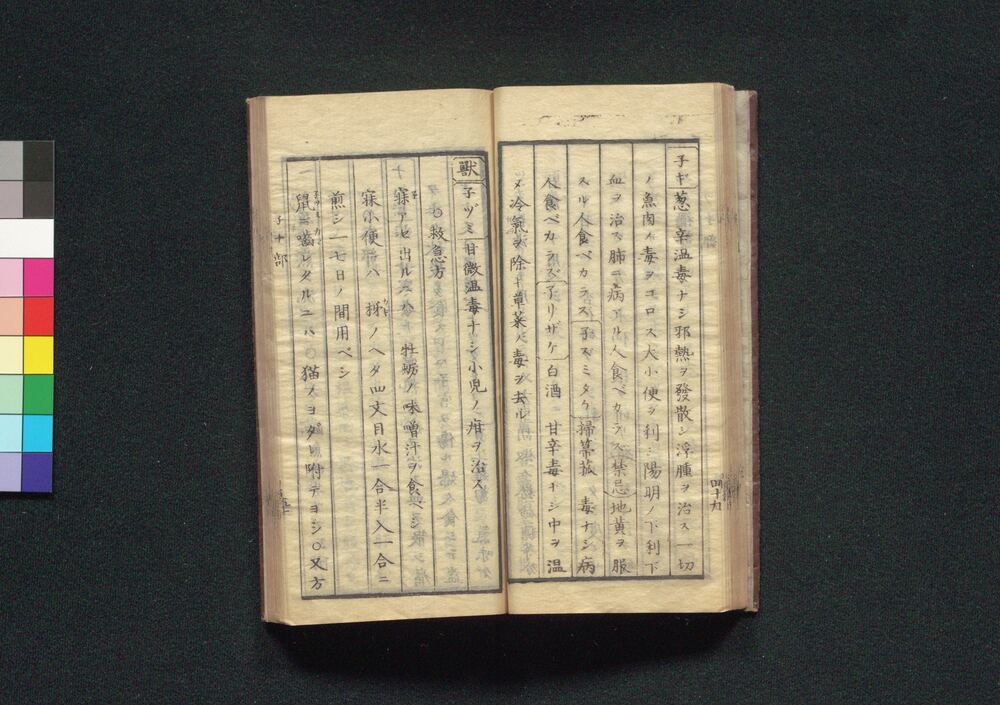 子ギ 葱 辛温毒ナシ邪熱ヲ發散シ浮腫ヲ治ス一切
ノ魚肉ノ毒ヲコロス大小便ヲ利シ陽明ノ下利下
血ヲ治ス肺ヲ病アル人食ベカラス禁忌地黄ヲ服
スル人食ベカラス子ズミタケ掃箒菰 毒ナシ病
人食ベカラズ子リザケ白酒 甘辛毒ナシ中ヲ温
メ冷氣ヲ除ク草菜ノ毒ヲ去ル
四十九
獣 子ヅミ 甘微温毒ナシ小児ノ疳ヲ治ス
〇救急方
寐アセ出ルニハ 牡蛎ノ味噌汁ヲ食ベシ
寐小便ハ 柹ノヘタ四文目水一合半入一合ニ
煎シ一七日ノ間用ベシ
鼠ニ噛レタルニハ〇猫ノヨダレ附テヨシ〇又方
子ノ部